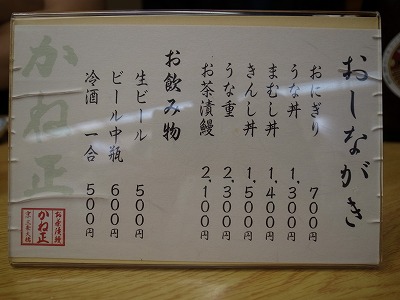 おしながき
おにぎり 700円
うな丼 1,300円
まむし丼 1,400円
きんし丼 1,500円
うな重 2,300円
お茶漬鰻 2,100円
お飲み物
生ビール 500円
ビール中瓶 600円
冷酒 一合 500円
かね正
お茶漬鰻
かね正